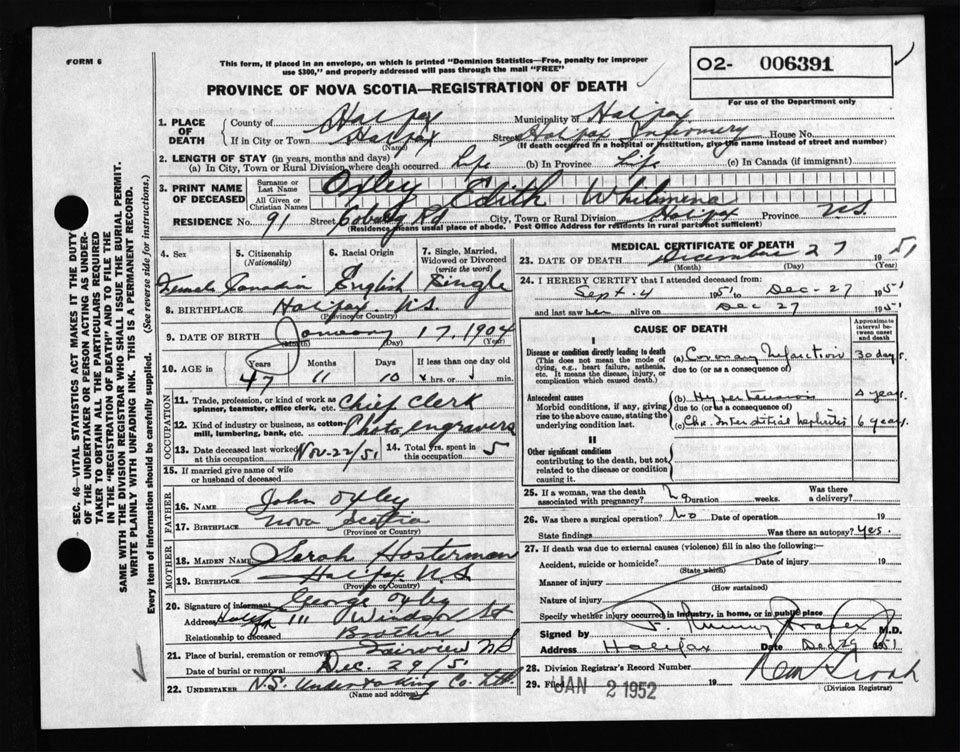 FORM 6
This form, if placed in an envelope, on which is printed "Dominion Statistics—Free, penalty for improper
use $300," and properly addressed will pass through the mail "FREE"
O2- 006391
For use of the Department only
PROVINCE OF NOVA SCOTIA—REGISTRATION OF DEATH
1. PLACE OF DEATH
County of Halifax Municipality of Halifax
If in City or Town Halifax Street Halifax Infirmary House No.
(Name) (If death occurred in a hospital or institution, give the name instead of street and number)
2. LENGTH OF STAY (in years, months and days)
(a) In City, Town or Rural Division where death occurred Life (b) In Province Life (c) In Canada (if immigrant)
3. PRINT NAME OF DECEASED
Surname or Last Name Oxley Edith Whilimena
All Given or Christian Names
RESIDENCE No. 91 Street Coburg Rd City, Town or Rural Division Halifax Province N.S.
(Residence means usual place of abode. Post Office Address for residents in rural parts not sufficient)
4. Sex 5. Citizenship (Nationality) 6. Racial Origin 7. Single, Married, Widowed or Divorced (write the word)
Female Canadian English Single
8. BIRTHPLACE Halifax N.S.
(Province or Country)
9. DATE OF BIRTH January 17, 1904
(Month) (Day) (Year)
10. AGE in Years Months Days If less than one day old
47 11 10 hrs. or min.
OCCUPATION
11. Trade, profession, or kind of work as spinner, teamster, office clerk, etc. Chief Clerk
12. Kind of industry or business, as cotton-mill, lumbering, bank, etc. Photo engravers
13. Date deceased last worked at this occupation Nov-22/51 14. Total yrs. spent in this occupation 5
15. If married give name of wife or husband of deceased
FATHER
16. Name John Oxley
17. Birthplace Nova Scotia
(Province or Country)
MOTHER
18. MAIDEN NAME Sarah Hosterman
19. Birthplace Halifax N.S
(Province or Country)
20. Signature of informant George Oxley
Address Halifax 111 Windsor St
Relationship to deceased Brother
21. Place of burial, cremation or removal Fairview N.S
Date of burial or removal Dec. 29/51
22. UNDERTAKER N.S. Undertaking Co. Ltd.
(Name and address)
MEDICAL CERTIFICATE OF DEATH
23. DATE OF DEATH December 27 1951
(Month) (Day) (Year)
24. I HEREBY CERTIFY that I attended deceased from:
Sept. 4 1951 to Dec-27 1951
and last saw her alive on Dec 27 1951
CAUSE OF DEATH
Approximate interval between onset and death
I
Disease or condition directly leading to death (a) Coronary Infarction 30 days.
(This does not mean the mode of dying, e.g., heart failure, asthenia, etc. It means the disease, injury, or complication which caused death.)
due to (or as a consequence of)
Antecedent causes (b) Hypertension years.
Morbid conditions, if any, giving rise to the above cause, stating the underlying condition last.
due to (or as a consequence of)
(c) Chr. Interstitial Nephritis 6 years.
II
Other significant conditions
contributing to the death, but not related to the disease or condition causing it.
25. If a woman, was the death associated with pregnancy? No Duration weeks. Was there a delivery?
26. Was there a surgical operation? No Date of operation 19
State findings Was there an autopsy? Yes.
27. If death was due to external causes (violence) fill in also the following:—
Accident, suicide or homicide? Date of injury 19
(State which)
Manner of injury
(How sustained)
Nature of injury
Specify whether injury occurred in industry, in home, or in public place
Signed by M.D.
Address Halifax Date Dec 1951
28. Division Registrar's Record Number
29. Filed JAN 2 1952 19
(Division Registrar)
SEC. 46—VITAL STATISTICS ACT MAKES IT THE DUTY
OF THE UNDERTAKER OR PERSON ACTING AS UNDER-
TAKER TO OBTAIN ALL THE PARTICULARS REQUIRED
IN THE "REGISTRATION OF DEATH" AND TO FILE THE
SAME WITH THE DIVISION REGISTRAR WHO SHALL ISSUE THE BURIAL PERMIT.
WRITE PLAINLY WITH UNFADING INK. THIS IS A PERMANENT RECORD.
Every item of information should be carefully supplied. (See reverse side for instructions.)